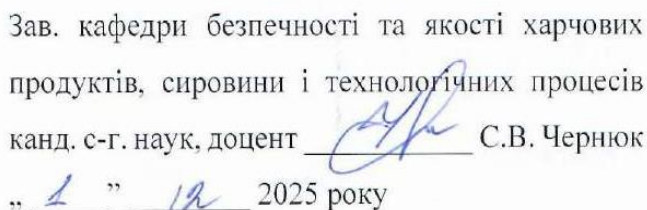 Зав. кафедри безпечності та якості харчових
продуктів, сировини і технологічних процесів
канд. с-г. наук, доцент ____________ С.В. Чернюк
„ 1 ” 12 2025 року